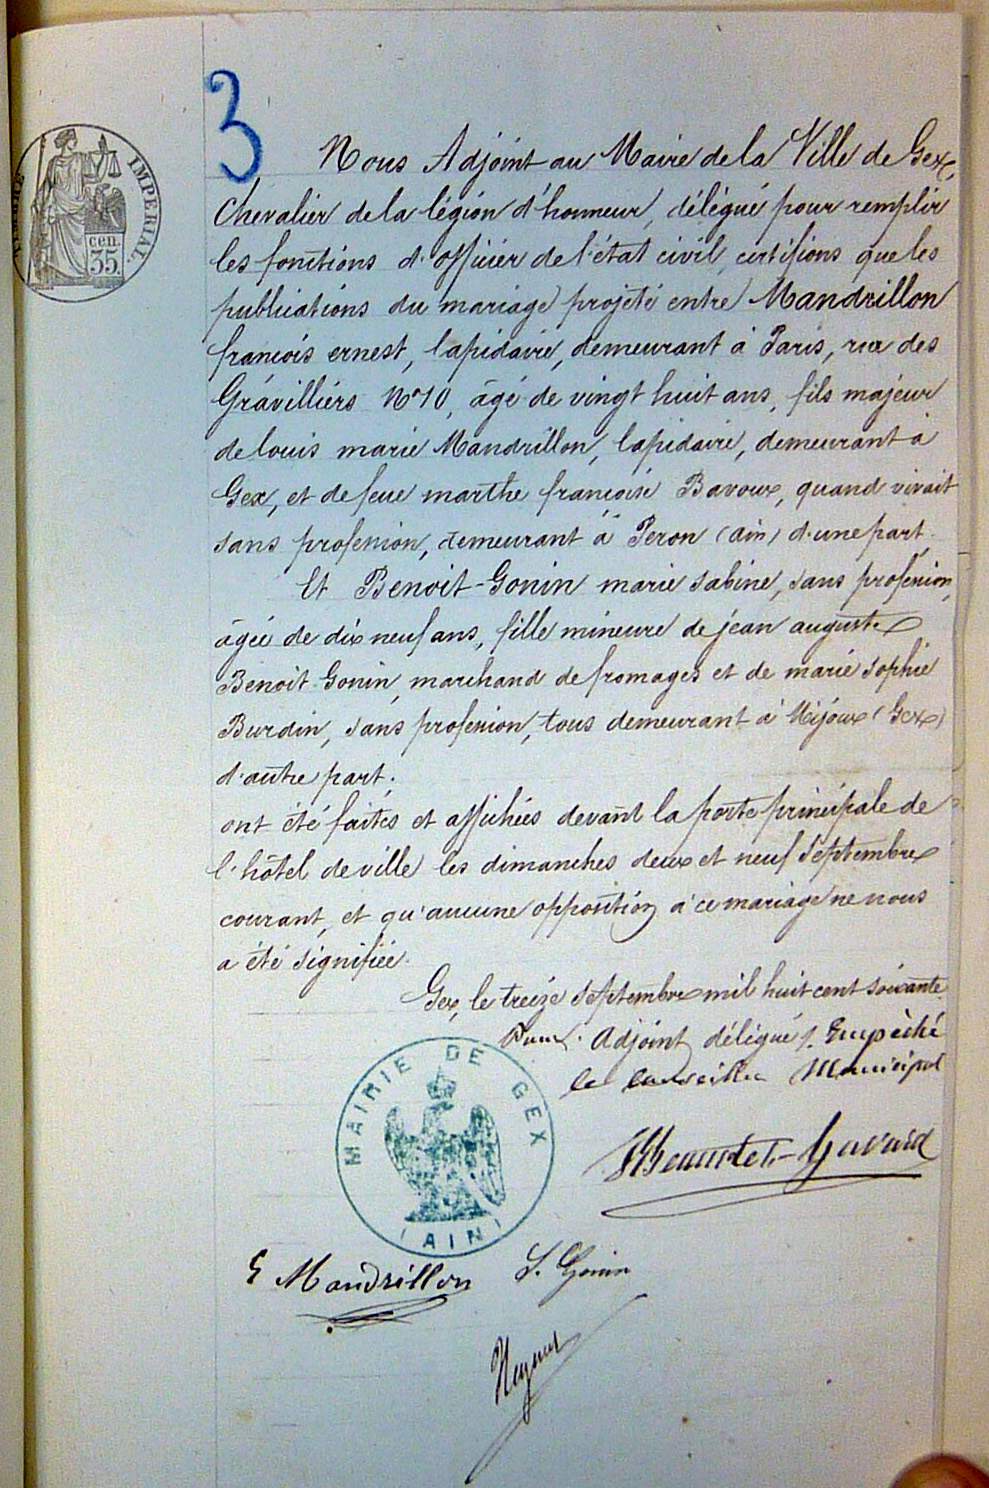 3
TIMBRE IMPERIAL
35 cen.
Nous Adjoint au Maire de la Ville de Gex,
Chevalier de la légion d'honneur, délégué pour remplir
les fonctions d'officier de l'état civil, certifions que les
publications du mariage projeté entre Mandrillon
françois ernest, lapidaire, demeurant à Paris, rue des
Gravilliers N° 10, âgé de vingt huit ans, fils majeur
de louis marie Mandrillon, lapidaire, demeurant à
Gex, et de feue marthe françoise Bavoux, quand vivait
sans profession, demeurant à Peron (ain) d'une part.
Et Benoit-Gonin marie sabine, sans profession,
âgée de dix neuf ans, fille mineure de jean auguste
Benoit-Gonin, marchand de fromages et de marie sophie
Burdin, sans profession, tous demeurant à Mijoux (Gex)
d'autre part.
ont été faites et affichées devant la porte principale de
l'hôtel de ville les dimanches deux et neuf septembre
courant, et qu'aucune opposition à ce mariage ne nous
a été signifiée.
Gex, le treize septembre mil huit cent soixante
Pour Adjoint délégué, Empêché
le conseiller Municipal
MAIRIE DE GEX
(AIN)
E Mandrillon S. Gonin